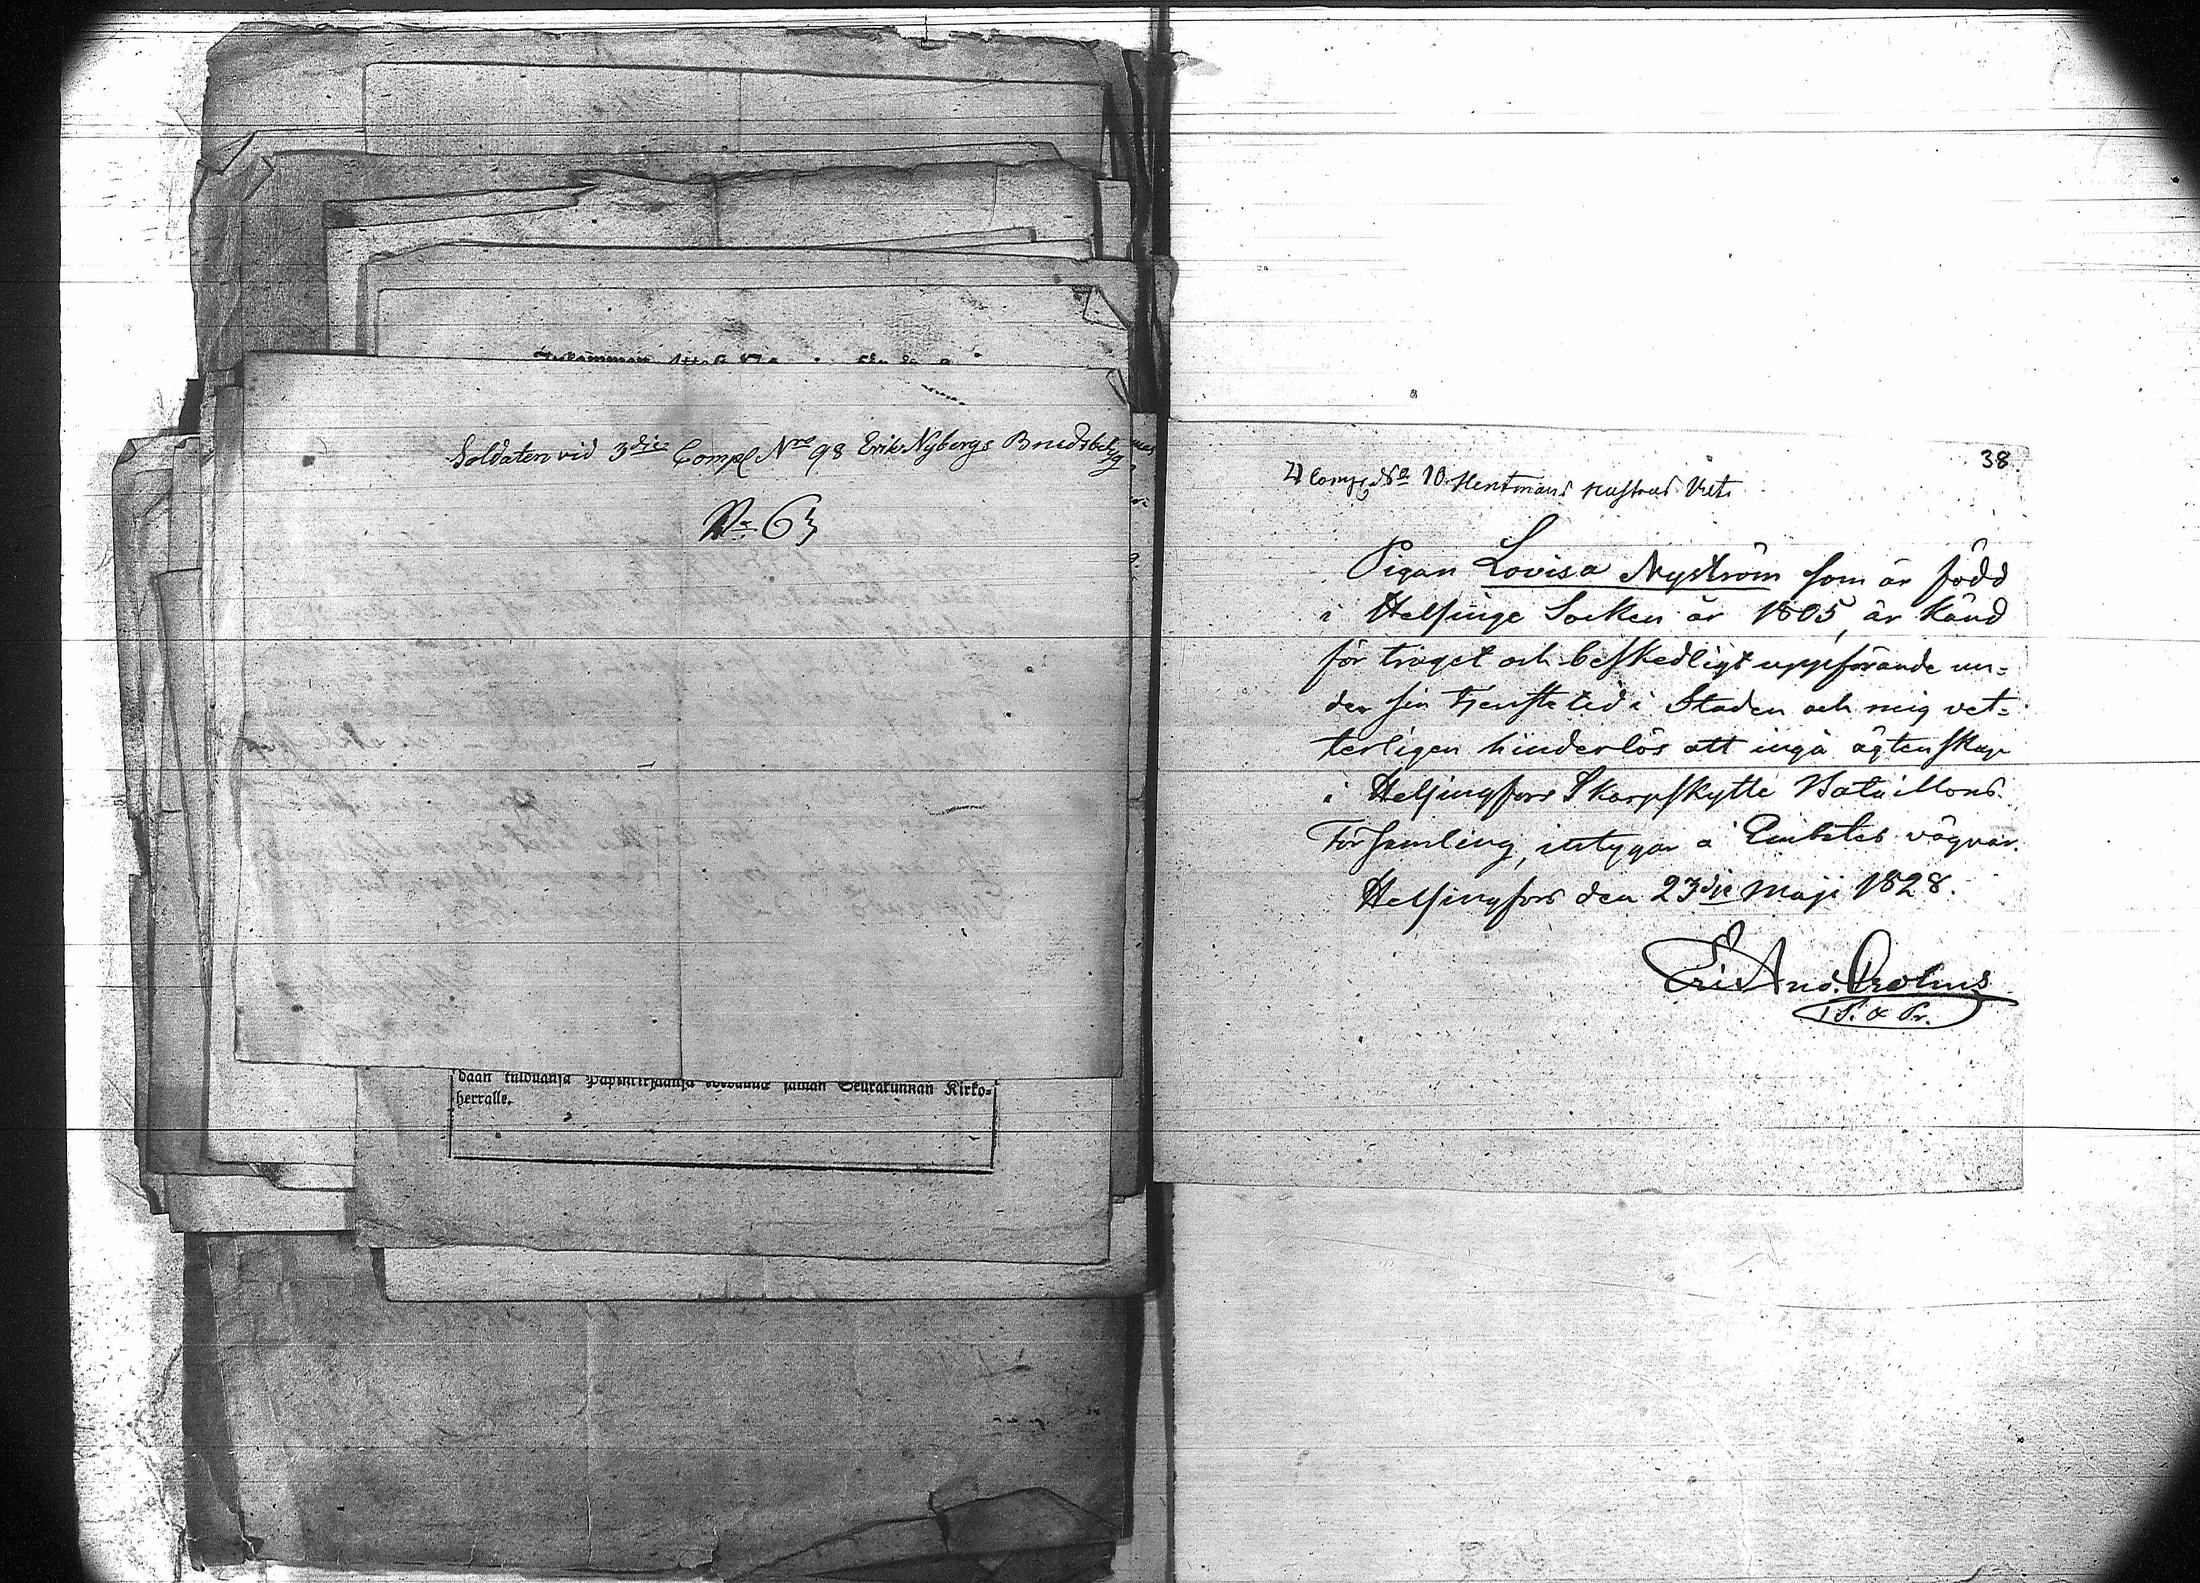 Soldaten vid 3die Comp Nro 98 Erik Nybergs
No 6
daan tulduansa saman Seurakunnan Kirko-
herralle.
38.
4 Comp. No 10. Hentmans hustrus
Pigan Lovisa Nyström som är född
i Helsinge Socken år 1805, är känd
för troget och beskedligt uppförande un-
der sin tjenstetid i Staden och mig vet-
terligen hinderlös att ingå ägtenskap
i Helsingfors Skarpskytte Bataillons
Församling, intygar å Embetes vägnar.
Helsingfors den 23die Maji 1828.
Eric And. Crolnus